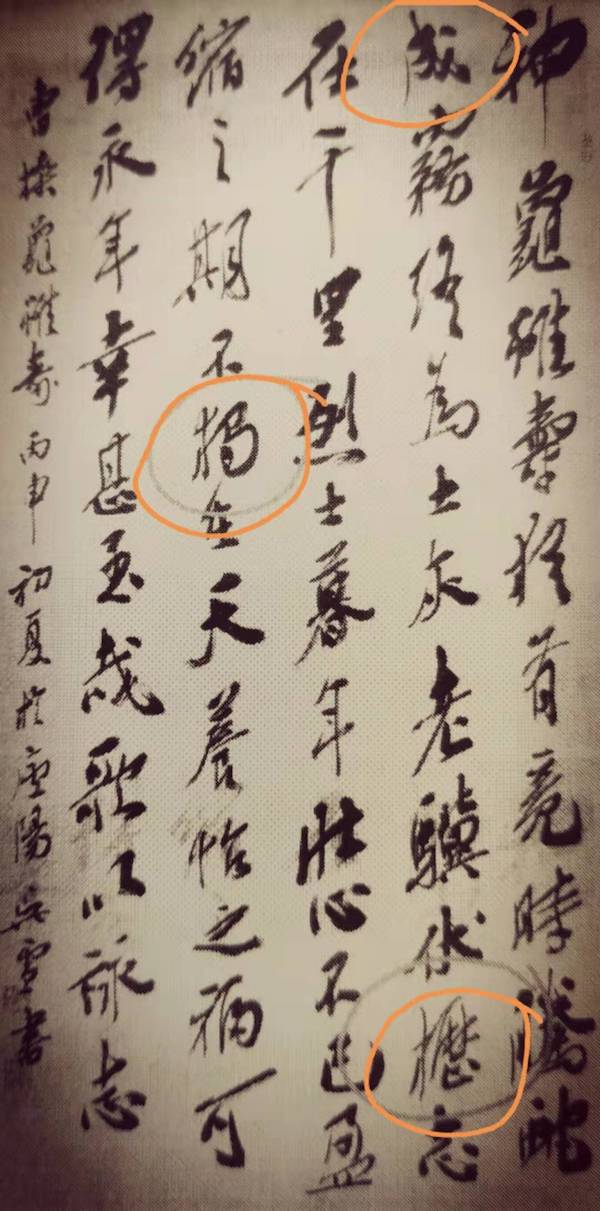 神龜雖壽猶有竟時騰蛇
成霧終為土灰老驥伏櫪志
在千里烈士暮年壯心不已盈
縮之期不在天養怡之福可
得永年幸甚至哉歌以詠志
曹操龜雖壽丙申初夏於陽書